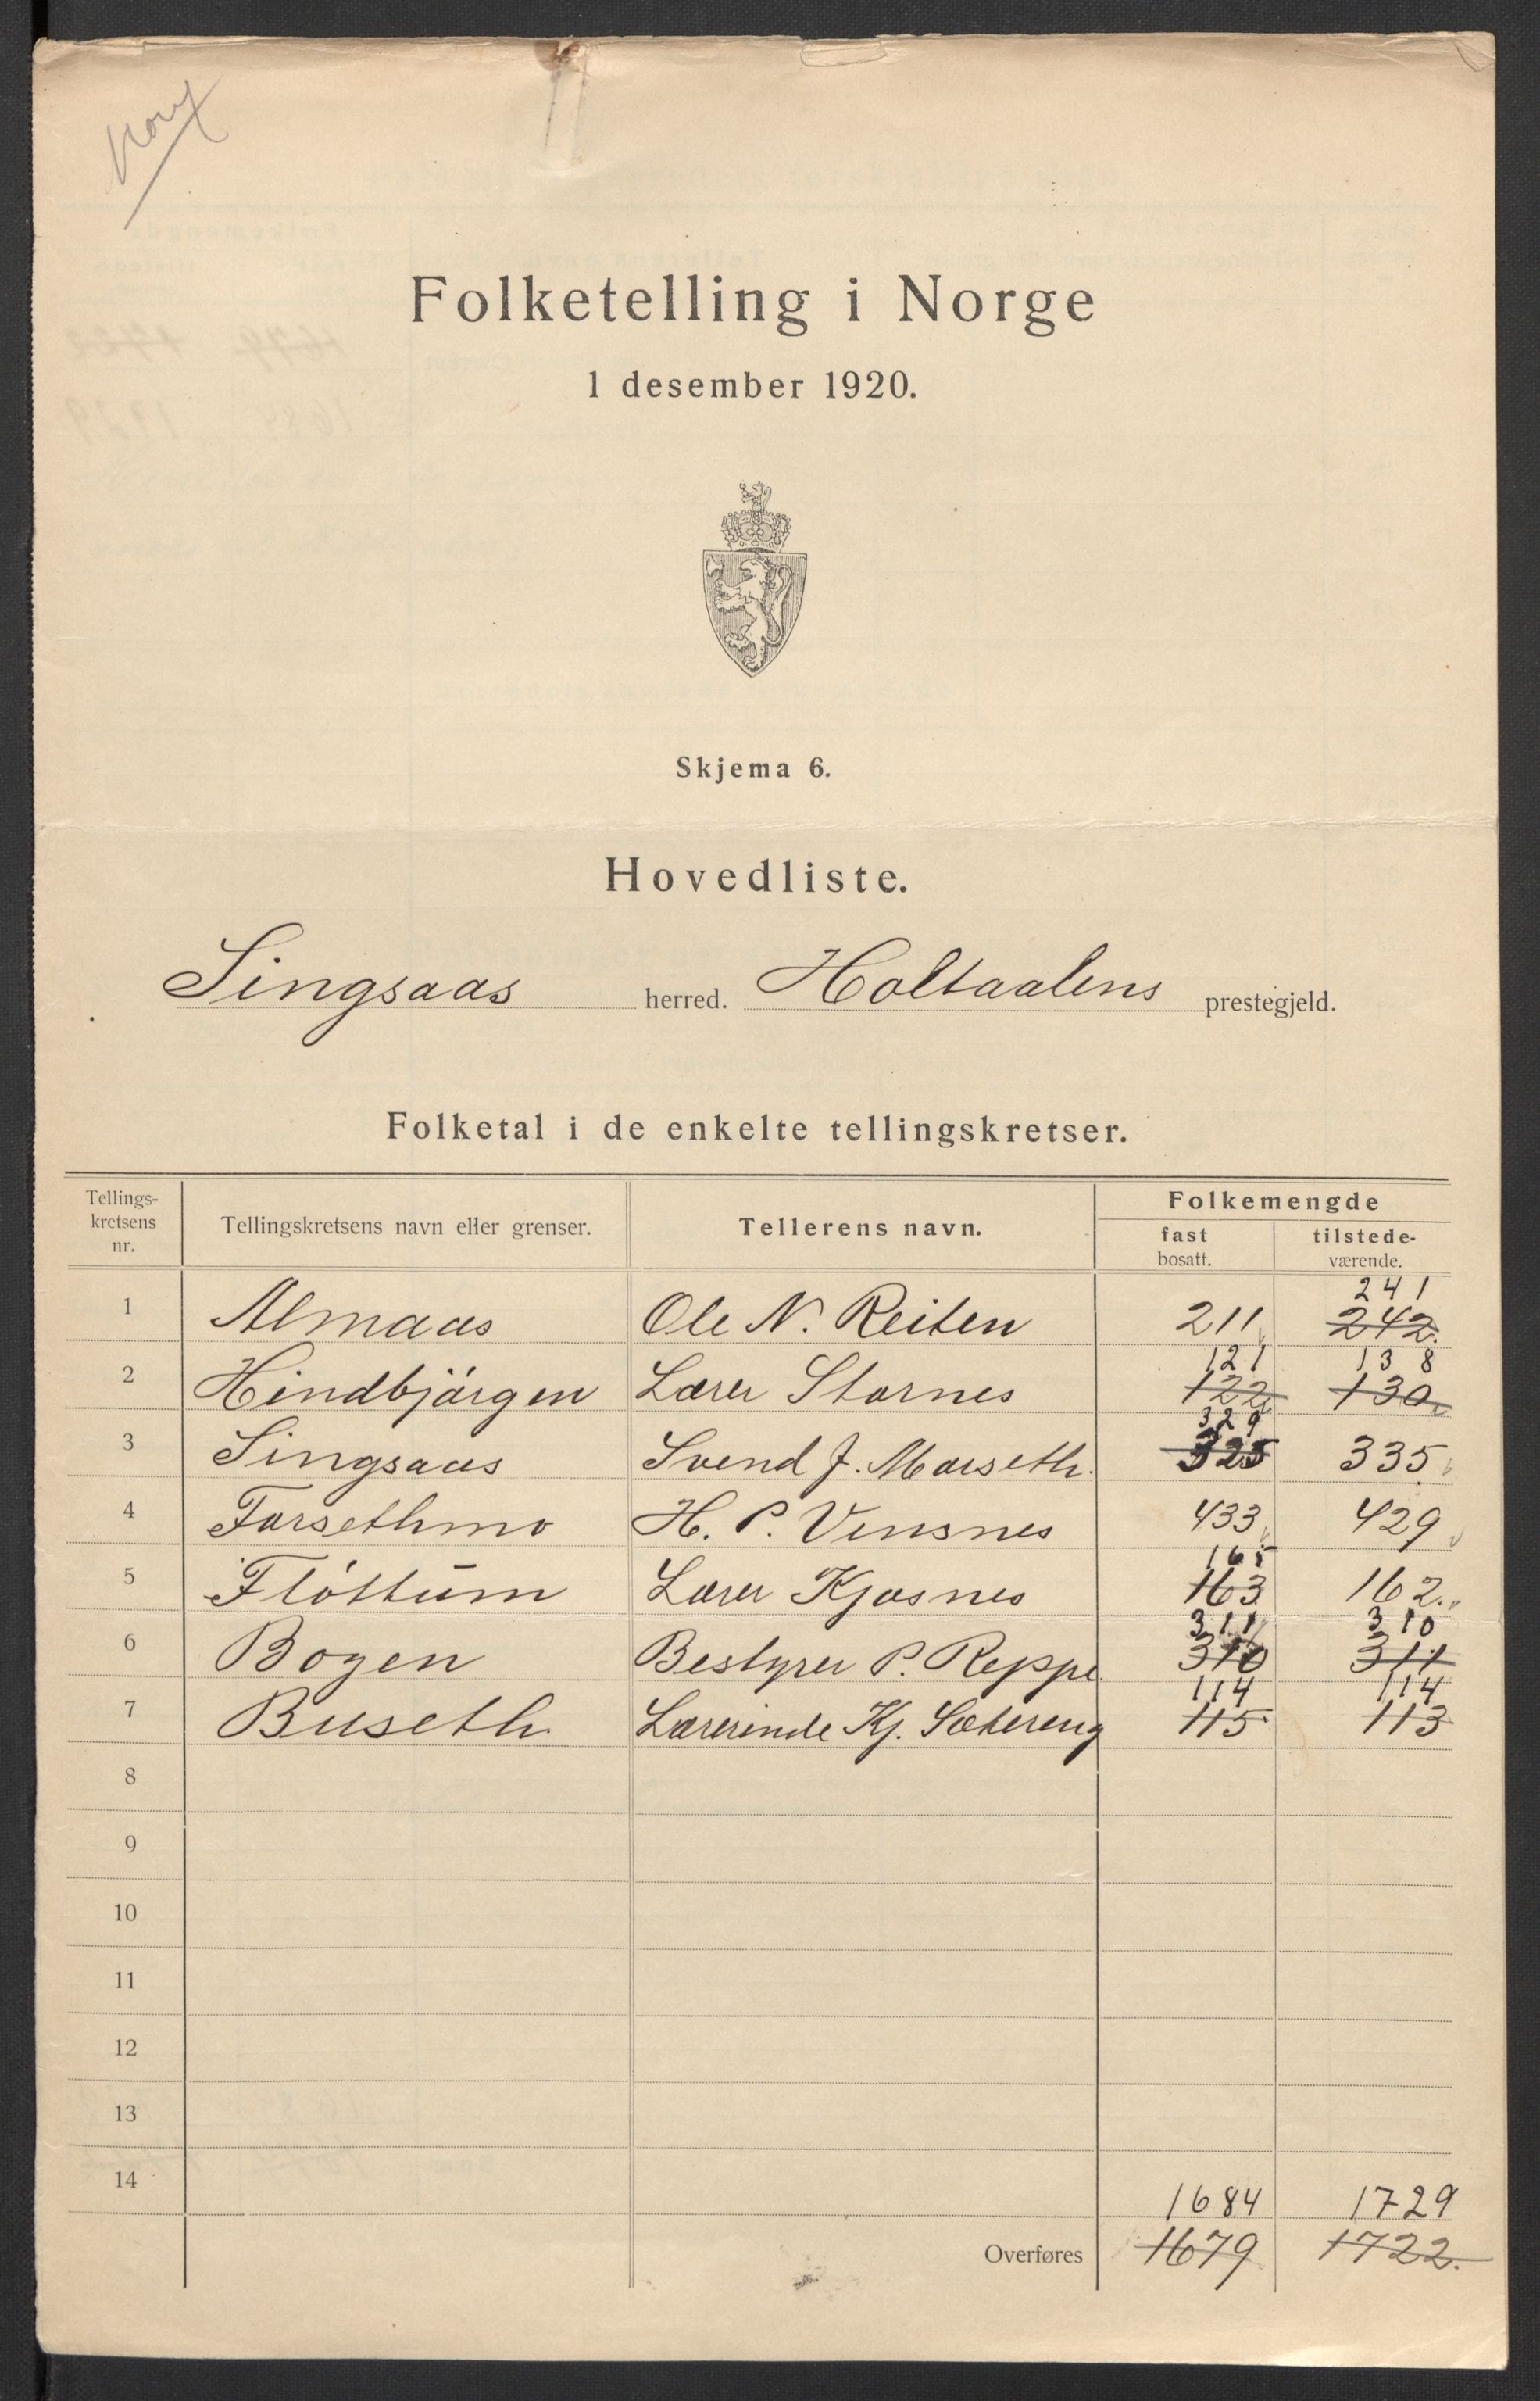 Folketelling i Norge
1 desember 1920.
Skjema 6.
Hovedliste.
Singsaas herred. Holtaalens prestegjeld.
Folketal i de enkelte tellingskretser.
Tellings-
kretsens
nr.
Tellingskretsens navn eller grenser.
Tellerens navn.
Folkemengde
fast
bosatt.
tilstede-
værende.
241
1 Almaas Ole N. Reiten 211 242.
121 138
2 Hindbjørgen Lærer Stornes 122 130
329
3 Singsaas Svend J. Moseth. 325 335
4 Forsethmo H. P. Vinsnes 433 429
165
5 Fløttum Lærer Kjøsnes 163 162.
311 310
6 Bogen Bestyrer P. Reppe 310 311
114 114
7 Buseth. Lærerinde Kj. Sætereng 115 113
8
9
10
11
12
13
14
1684 1729
Overføres 1679 1722.